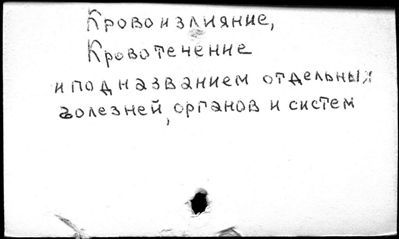 Кровоизлияние,
Кровотечение
и под названием отдельных
болезней, органов и систем